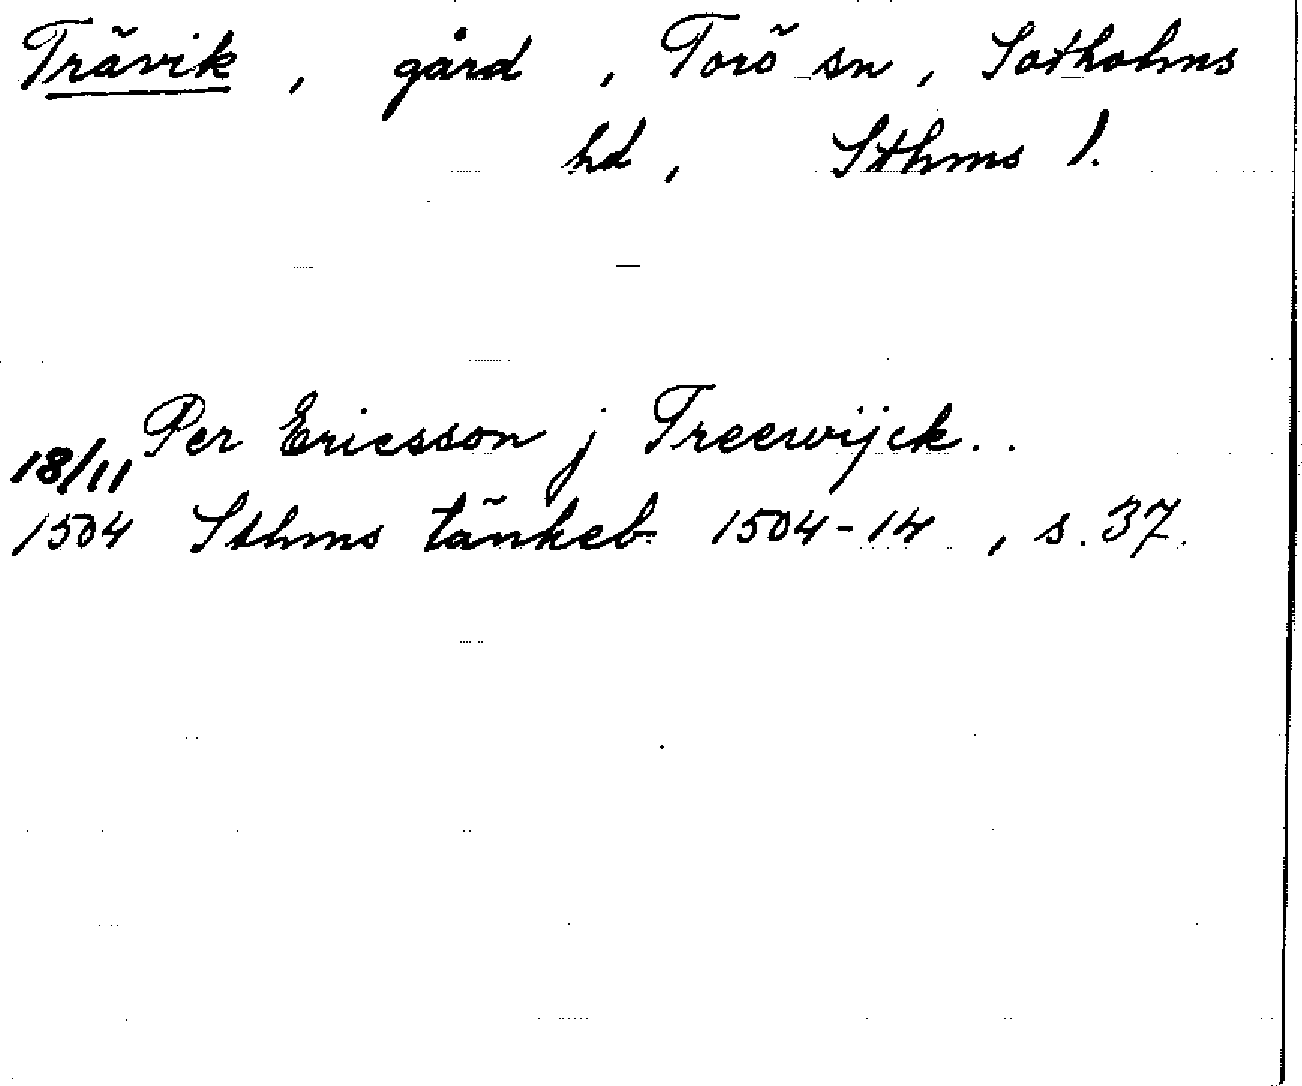 Trävik, gård, Torö sn, Sotholms
hd, Sthms l.
Per Ericsson j Treewijck..
18/11
1504 Sthms tänkeb 1504-14, s. 37.